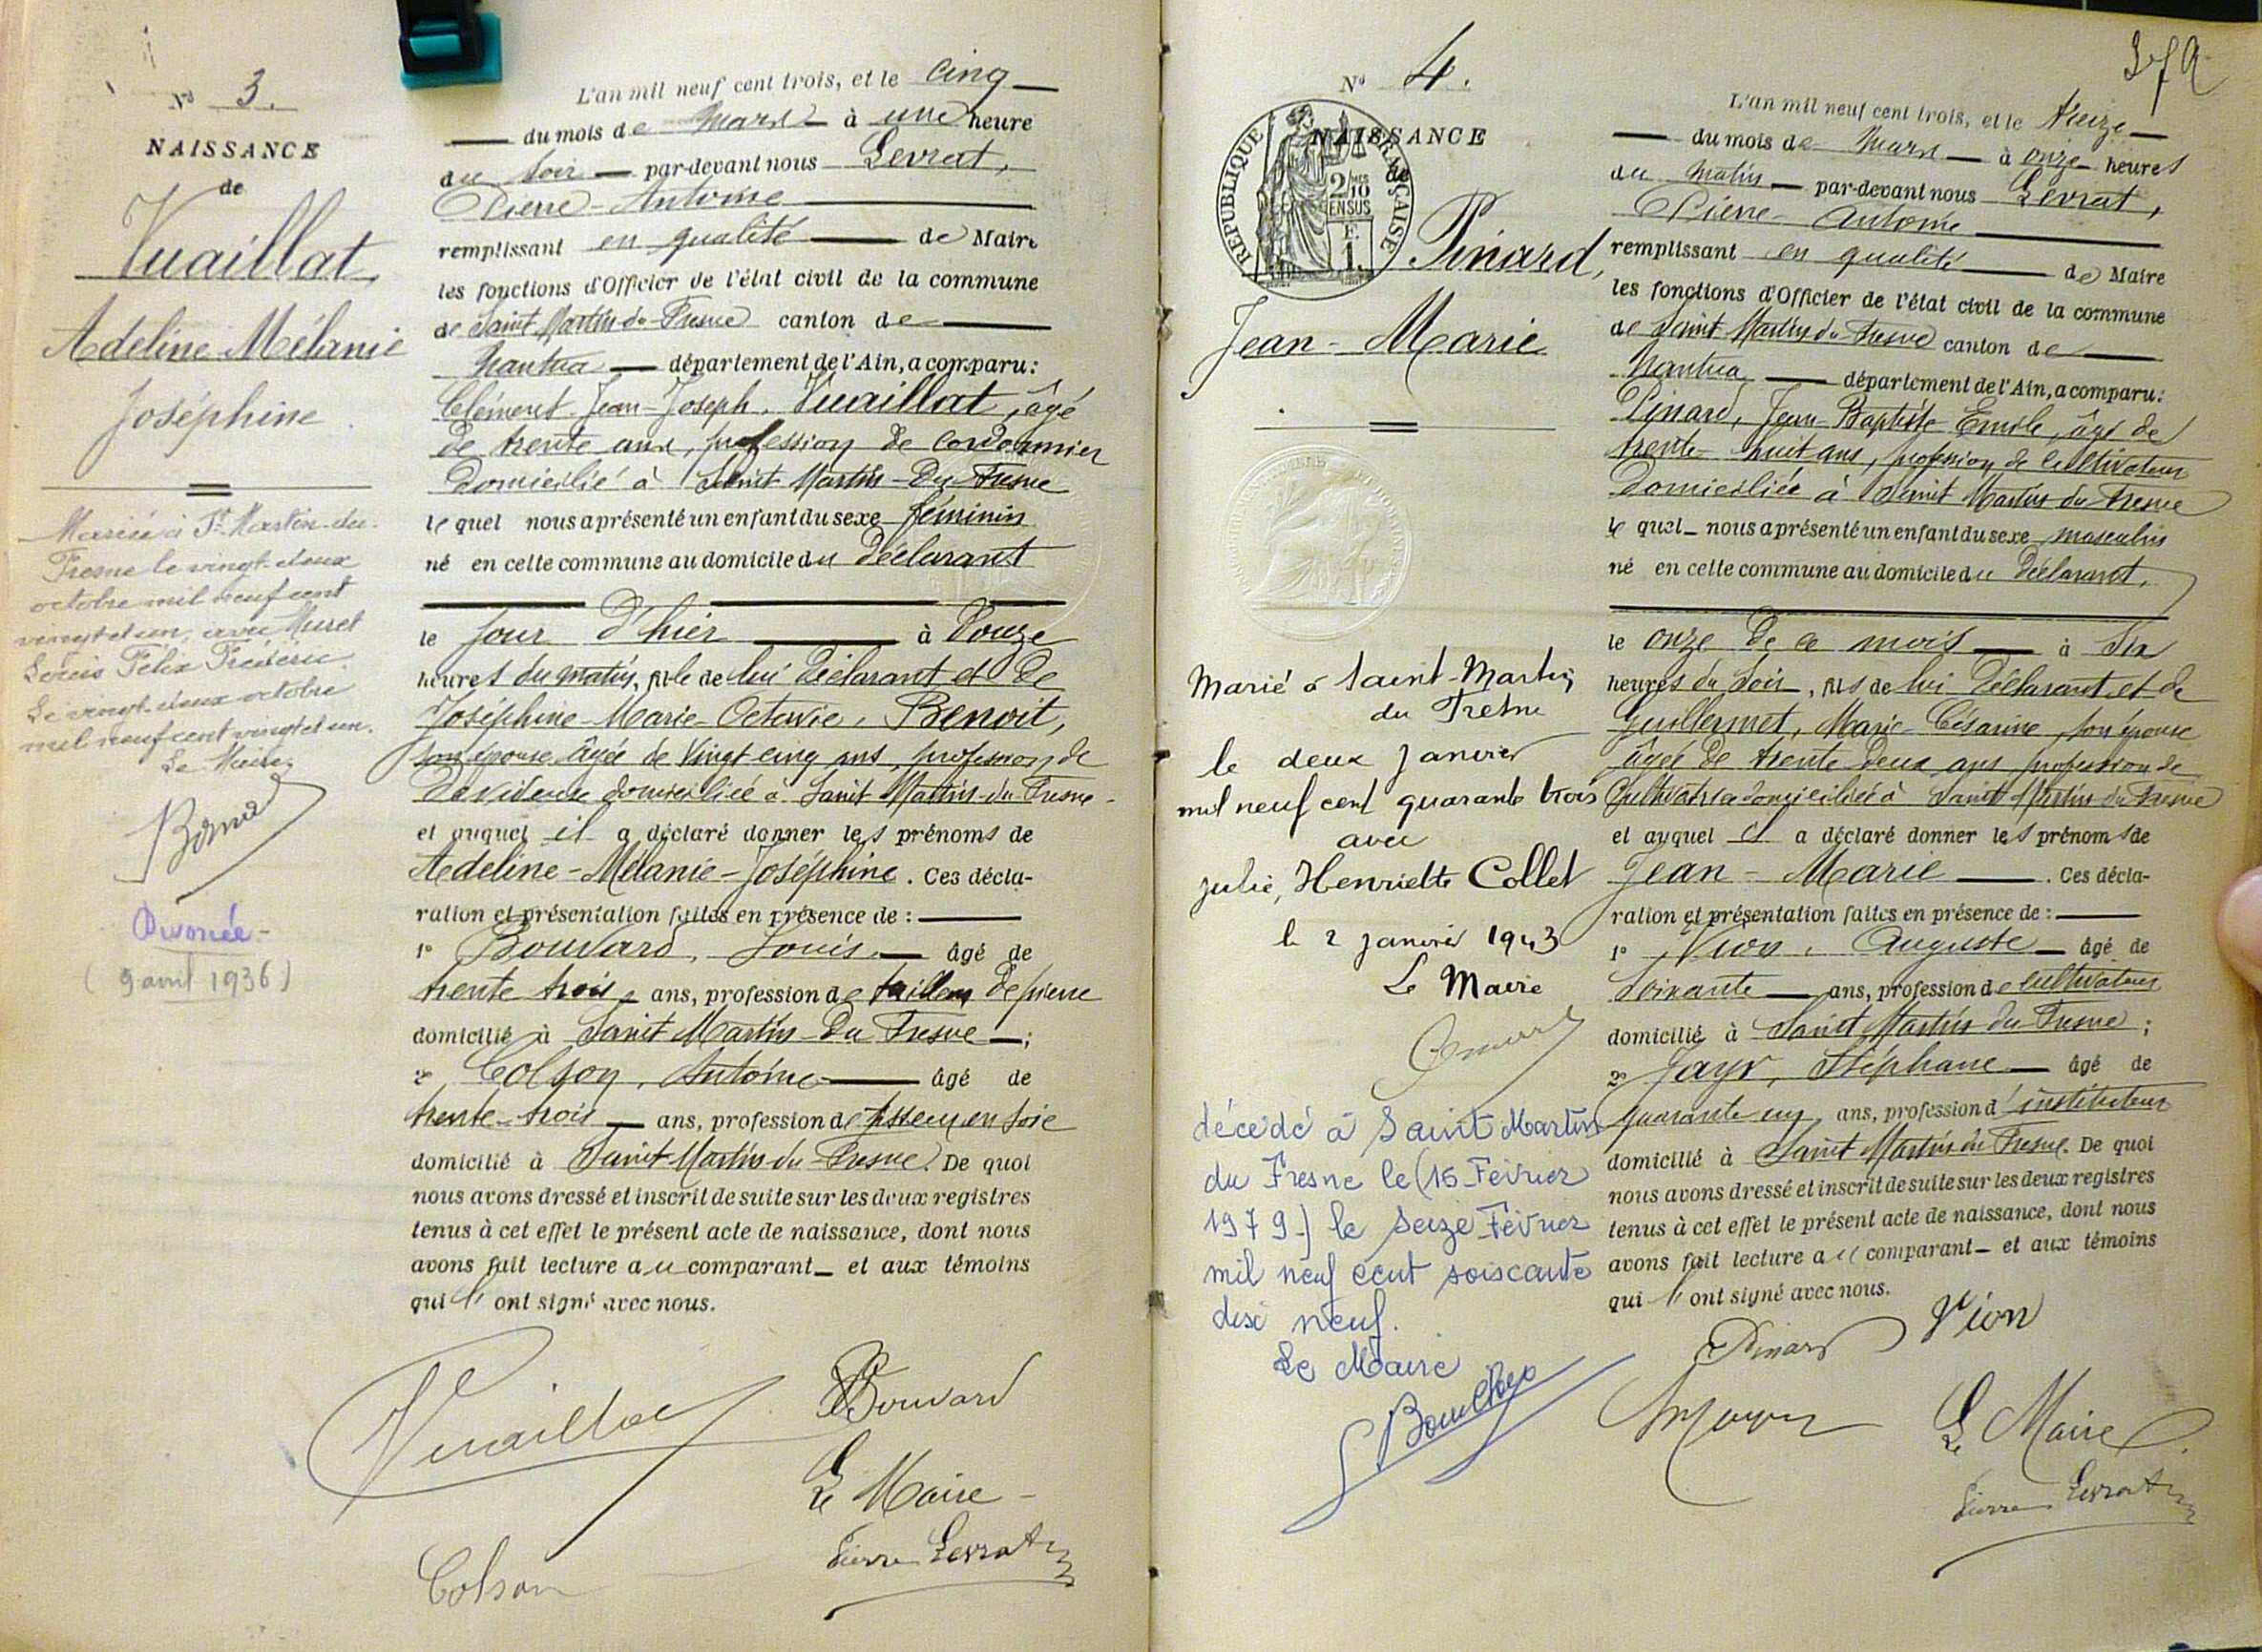 N° 3.
NAISSANCE
de
Vuaillat,
Adeline Mélanie
Joséphine
Mariée à St Martin-du-
Fresne le vingt-deux
octobre mil neuf cent
vingt et un, avec Muret
Louis Félix Frédéric.
Le vingt-deux octobre
mil neuf cent vingt et un.
Le Maire,
Divorcée-
(9 avril 1936)
L'an mil neuf cent trois, et le cinq
du mois de Mars à une heure
du soir par-devant nous Levrat,
Pierre-Antoine
remplissant en qualité de Maire
les fonctions d'Officier de l'état civil de la commune
de Saint-Martin-du-Fresne canton de
Nantua département de l'Ain, a comparu:
Clément-Jean-Joseph, Vuaillat, âgé
de trente ans, profession de cordonnier
domicilié à Saint Martin-Du-Fresne
lequel nous a présenté un enfant du sexe féminin
né en cette commune au domicile du déclarant
le jour d'hier à douze
heures du matin, fille de lui déclarant et de
Joséphine-Marie-Octavie, Benoit,
son épouse âgée de vingt-cinq ans, profession de
dévideuse domiciliée à Saint Martin-du-Fresne
et auquel il a déclaré donner les prénoms de
Adeline-Mélanie-Joséphine. Ces décla-
ration et présentation faites en présence de :
1° Bouvard, Louis, âgé de
trente trois ans, profession de tailleur de pierre
domicilié à Saint Martin-Du-Fresne ;
2° Colson, Antoine âgé de
trente-trois ans, profession de tisseur en soie
domicilié à Saint-Martin-du-Fresne. De quoi
nous avons dressé et inscrit de suite sur les deux registres
tenus à cet effet le présent acte de naissance, dont nous
avons fait lecture au comparant et aux témoins
qui l' ont signé avec nous.
Vuaillat
Bouvard
Le Maire
Colson
Pierre Levrat
N° 4.
RÉPUBLIQUE FRANÇAISE
2/10 EN SUS
F. 1.
NAISSANCE
de
Pinard,
Jean-Marie
Marié à Saint-Martin
du Fresne
le deux janvier
mil neuf cent quarante trois
avec
Julie, Henriette Collet
le 2 janvier 1943
Le Maire
décédé à Saint Martin
du Fresne le (16 Février
1979) le seize Février
mil neuf cent soiscante
disc neuf.
Le Maire
L'an mil neuf cent trois, et le treize
du mois de Mars à onze heures
du matin par-devant nous Levrat,
Pierre-Antoine
remplissant en qualité de Maire
les fonctions d'Officier de l'état civil de la commune
de Saint Martin-du-Fresne canton de
Nantua département de l'Ain, a comparu:
Pinard, Jean-Baptiste-Emile, âgé de
trente-huit ans, profession de cultivateur
domiciliée à Saint Martin du Fresne
lequel nous a présenté un enfant du sexe masculin
né en cette commune au domicile du déclarant,
le onze de ce mois à six
heures du soir, fils de lui déclarant et de
Guillermet, Marie-Césarine, son épouse
âgée de trente-deux ans profession de
cultivatrice domiciliée à Saint-Martin-du-Fresne
et auquel il a déclaré donner les prénoms de
Jean-Marie. Ces décla-
ration et présentation faites en présence de :
1° Vion, Auguste âgé de
soixante ans, profession de cultivateur
domicilié à Saint Martin du Fresne ;
2° Jayr, Stéphane âgé de
quarante un ans, profession d'instituteur
domicilié à Saint Martin du Fresne. De quoi
nous avons dressé et inscrit de suite sur les deux registres
tenus à cet effet le présent acte de naissance, dont nous
avons fait lecture au comparant et aux témoins
qui l' ont signé avec nous.
Pinard
Vion
Le Maire
Pierre Levrat